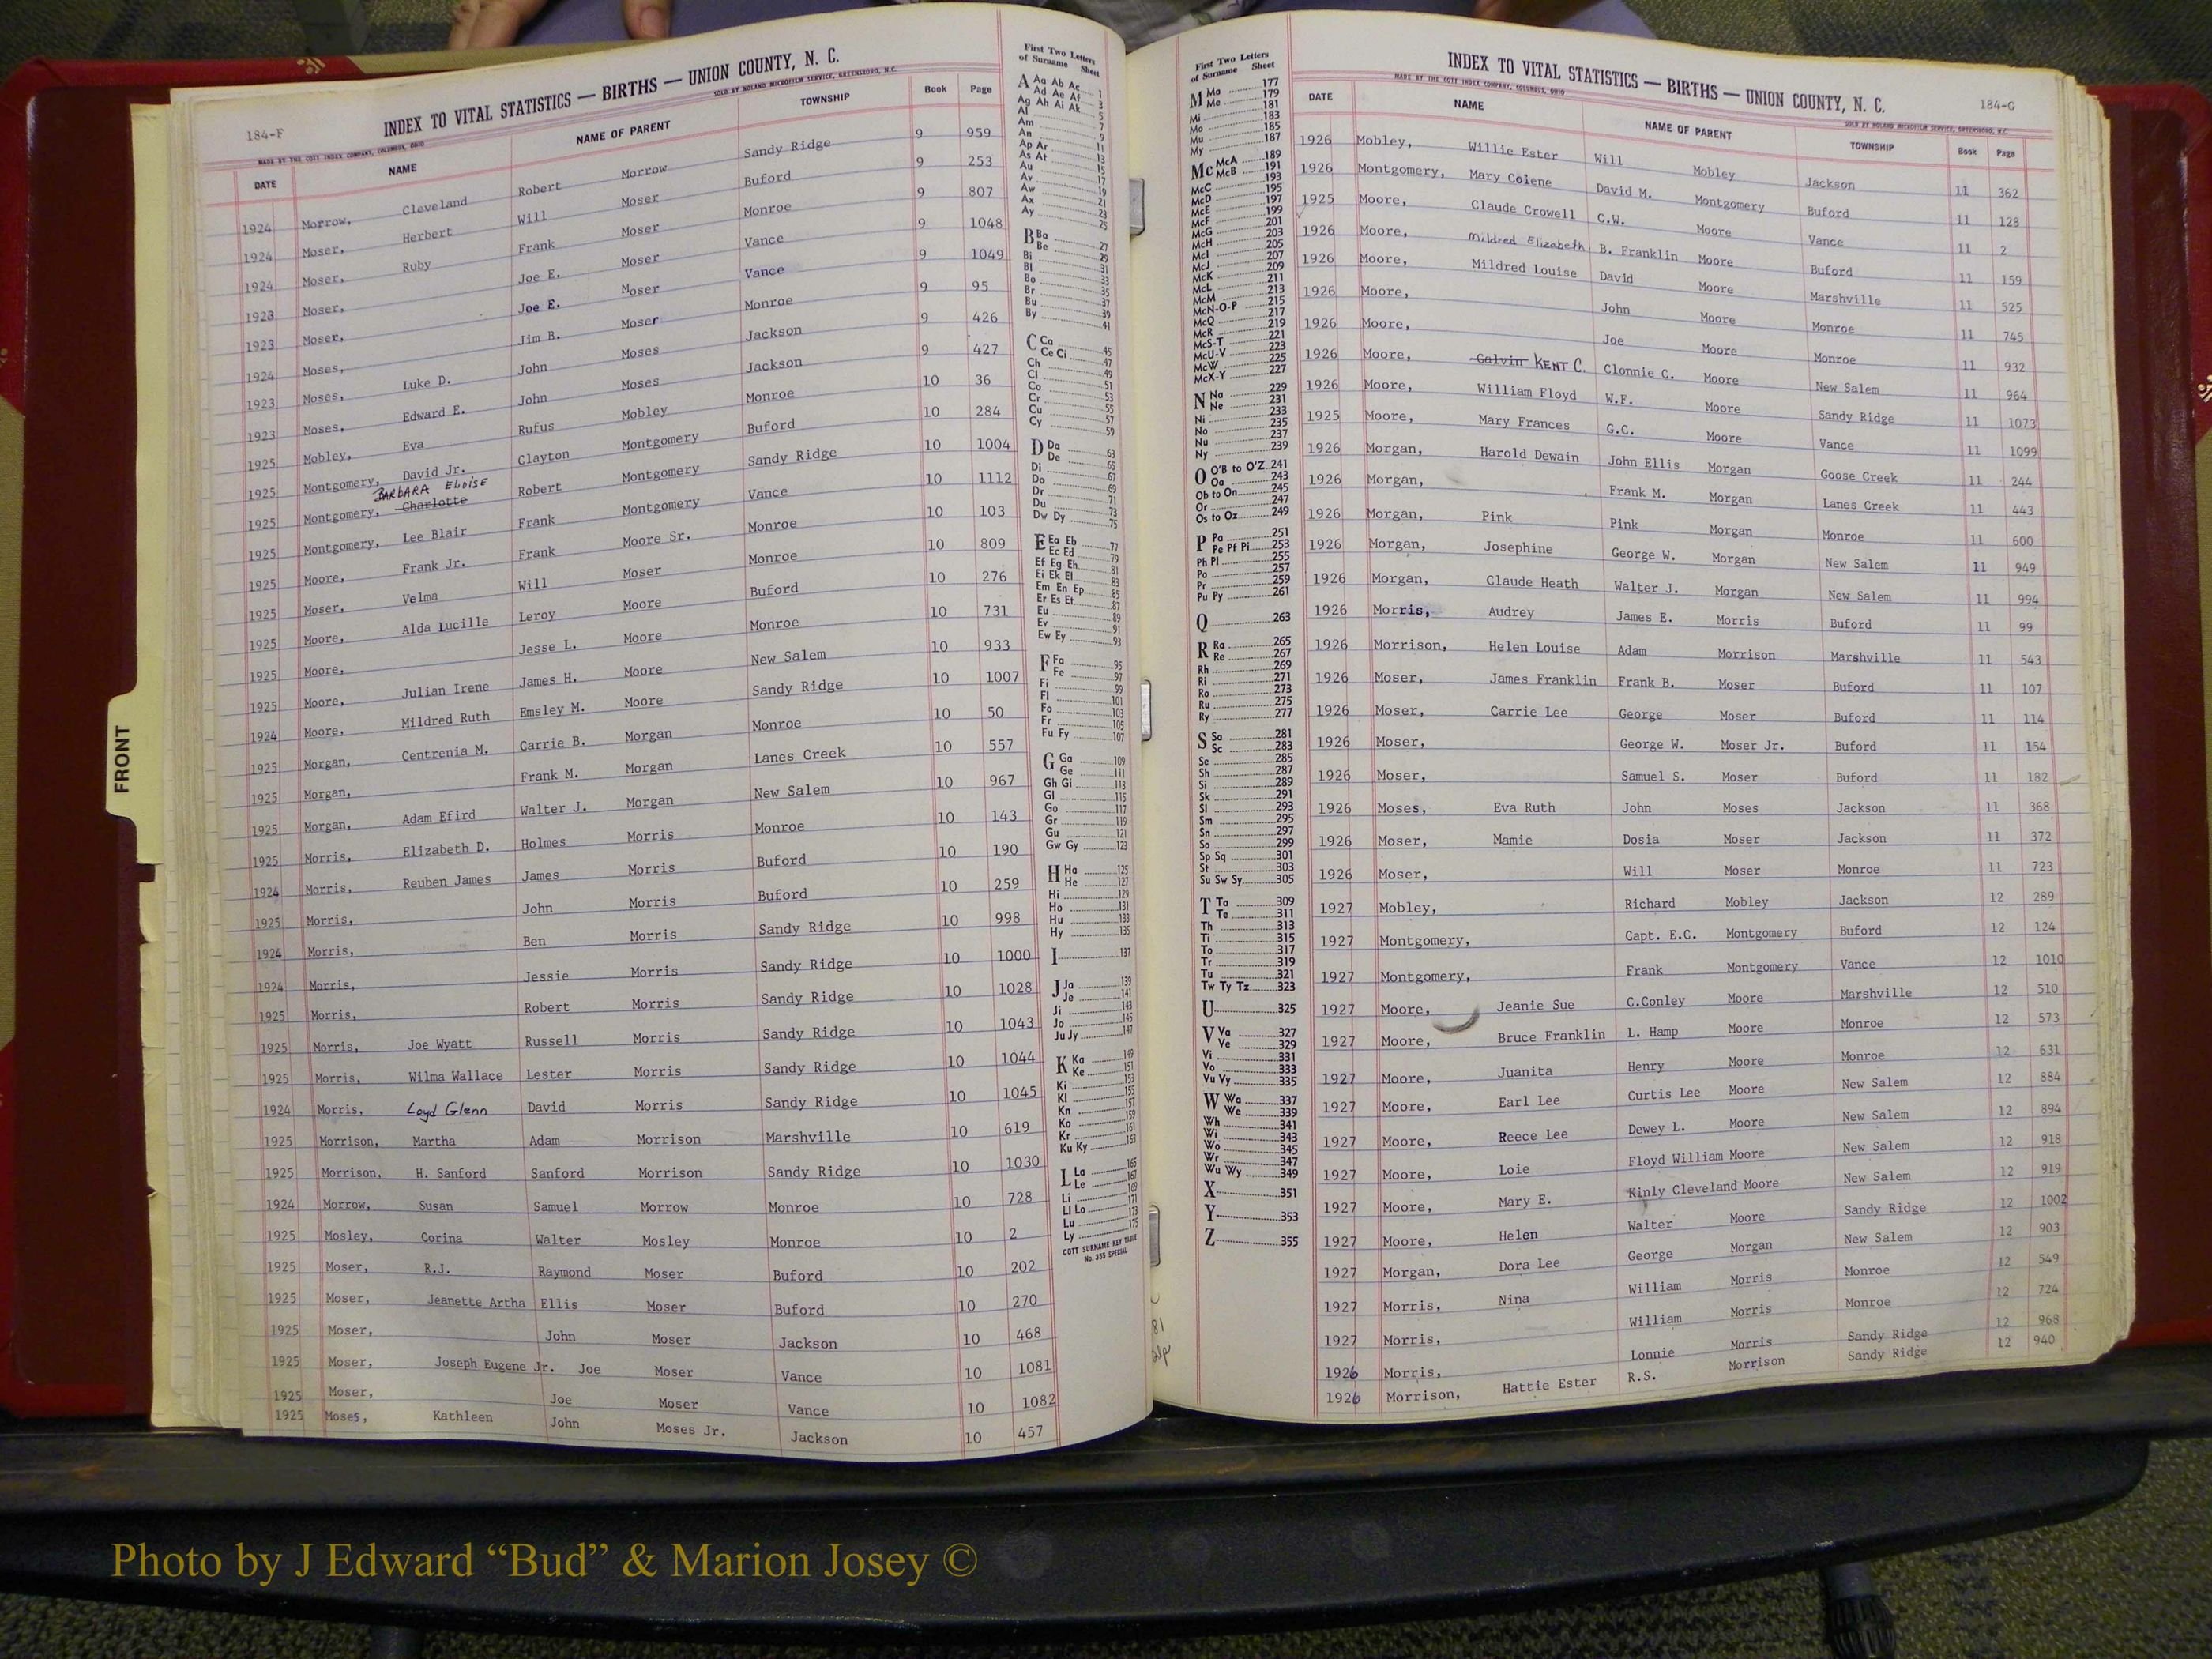 184-F
INDEX TO VITAL STATISTICS — BIRTHS — UNION COUNTY, N. C.
MADE BY THE COTT INDEX COMPANY, COLUMBUS, OHIO SOLD BY NOLAND MICROFILM SERVICE, GREENSBORO, N.C.
DATE NAME NAME OF PARENT TOWNSHIP Book Page
1924 Morrow, Cleveland Robert Morrow Sandy Ridge 9 959
1924 Moser, Herbert Will Moser Buford 9 253
1924 Moser, Ruby Frank Moser Monroe 9 807
1923 Moser, Joe E. Moser Vance 9 1048
1923 Moser, Joe E. Moser Vance 9 1049
1924 Moses, Jim B. Moser Monroe 9 95
1923 Moses, Luke D. John Moses Jackson 9 426
1923 Moses, Edward E. John Moses Jackson 9 427
1925 Mobley, Eva Rufus Mobley Monroe 10 36
1925 Montgomery, David Jr. Clayton Montgomery Buford 10 284
BARBARA ELOISE
1925 Montgomery, Charlotte Robert Montgomery Sandy Ridge 10 1004
1925 Montgomery, Lee Blair Frank Montgomery Vance 10 1112
1925 Moore, Frank Jr. Frank Moore Sr. Monroe 10 103
1925 Moser, Velma Will Moser Monroe 10 809
1925 Moore, Alda Lucille Leroy Moore Buford 10 276
1925 Moore, Jesse L. Moore Monroe 10 731
1925 Moore, Julian Irene James H. Moore New Salem 10 933
1924 Moore, Mildred Ruth Emsley M. Moore Sandy Ridge 10 1007
1925 Morgan, Centrenia M. Carrie B. Morgan Monroe 10 50
1925 Morgan, Frank M. Morgan Lanes Creek 10 557
1925 Morgan, Adam Efird Walter J. Morgan New Salem 10 967
1925 Morris, Elizabeth D. Holmes Morris Monroe 10 143
1924 Morris, Reuben James James Morris Buford 10 190
1925 Morris, John Morris Buford 10 259
1924 Morris, Ben Morris Sandy Ridge 10 998
1924 Morris, Jessie Morris Sandy Ridge 10 1000
1925 Morris, Robert Morris Sandy Ridge 10 1028
1925 Morris, Joe Wyatt Russell Morris Sandy Ridge 10 1043
1925 Morris, Wilma Wallace Lester Morris Sandy Ridge 10 1044
1924 Morris, Loyd Glenn David Morris Sandy Ridge 10 1045
1925 Morrison, Martha Adam Morrison Marshville 10 619
1925 Morrison, H. Sanford Sanford Morrison Sandy Ridge 10 1030
1924 Morrow, Susan Samuel Morrow Monroe 10 728
1925 Mosley, Corina Walter Mosley Monroe 10 2
1925 Moser, R.J. Raymond Moser Buford 10 202
1925 Moser, Jeanette Artha Ellis Moser Buford 10 270
1925 Moser, John Moser Jackson 10 468
1925 Moser, Joseph Eugene Jr. Joe Moser Vance 10 1081
1925 Moser, Joe Moser Vance 10 1082
1925 Moses, Kathleen John Moses Jr. Jackson 10 457
FRONT
First Two Letters
of Surname Sheet
A Aa Ab Ac 1
Ad Ae Af 3
Ag Ah Ai Ak 5
Al 7
Am 9
An 11
Ap Ar 13
As At 15
Au 17
Av 19
Aw 21
Ax 23
Ay 25
B Ba 27
Be 29
Bi 31
Bl 33
Bo 35
Br 37
Bu 39
By 41
C Ca 45
Ce Ci 47
Ch 49
Cl 51
Co 53
Cr 55
Cu 57
Cy 59
D Da 63
De 65
Di 67
Do 69
Dr 71
Du 73
Dw Dy 75
E Ea Eb 77
Ec Ed 79
Ef Eg Eh 81
Ei Ek El 83
Em En Ep 85
Er Es Et 87
Eu 89
Ev 91
Ew Ey 93
F Fa 95
Fe 97
Fi 99
Fl 101
Fo 103
Fr 105
Fu Fy 107
G Ga 109
Ge 111
Gh Gi 113
Gl 115
Go 117
Gr 119
Gu 121
Gw Gy 123
H Ha 125
He 127
Hi 129
Ho 131
Hu 133
Hy 135
I 137
J Ja 139
Je 141
Ji 143
Jo 145
Ju Jy 147
K Ka 149
Ke 151
Ki 153
Kl 155
Kn 157
Ko 159
Kr 161
Ku Ky 163
L La 165
Le 167
Li 169
Ll Lo 171
Lu 173
Ly 175
COTT SURNAME KEY TABLE
No. 355 SPECIAL
First Two Letters
of Surname Sheet
M Ma 177
Me 179
Mi 181
Mo 183
Mu 185
My 187
Mc McA 189
McB 191
McC 193
McD 195
McE 197
McF 199
McG 201
McH 203
McI 205
McJ 207
McK 209
McL 211
McM 213
McN-O-P 215
McQ 217
McR 219
McS-T 221
McU-V 223
McW 225
McX-Y 227
N Na 229
Ne 231
Ni 233
No 235
Nu 237
Ny 239
O O'B to O'Z 241
Oa 243
Ob to On 245
Or 247
Os to Oz 249
P Pa 251
Pe Pf Pi 253
Ph Pl 255
Po 257
Pr 259
Pu Py 261
Q 263
R Ra 265
Re 267
Rh 269
Ri 271
Ro 273
Ru 275
Ry 277
S Sa 281
Sc 283
Se 285
Sh 287
Si 289
Sk 291
Sl 293
Sm 295
Sn 297
So 299
Sp Sq 301
St 303
Su Sw Sy 305
T Ta 309
Te 311
Th 313
Ti 315
To 317
Tr 319
Tu 321
Tw Ty Tz 323
U 325
V Va 327
Ve 329
Vi 331
Vo 333
Vu Vy 335
W Wa 337
We 339
Wh 341
Wi 343
Wo 345
Wr 347
Wu Wy 349
X 351
Y 353
Z 355
INDEX TO VITAL STATISTICS — BIRTHS — UNION COUNTY, N. C.
184-G
MADE BY THE COTT INDEX COMPANY, COLUMBUS, OHIO SOLD BY NOLAND MICROFILM SERVICE, GREENSBORO, N.C.
DATE NAME NAME OF PARENT TOWNSHIP Book Page
1926 Mobley, Willie Ester Will Mobley Jackson 11 362
1926 Montgomery, Mary Colene David M. Montgomery Buford 11 128
1925 Moore, Claude Crowell C.W. Moore Vance 11 2
1926 Moore, Mildred Elizabeth B. Franklin Moore Buford 11 159
1926 Moore, Mildred Louise David Moore Marshville 11 525
1926 Moore, John Moore Monroe 11 745
1926 Moore, Joe Moore Monroe 11 932
1926 Moore, Calvin KENT C. Clonnie C. Moore New Salem 11 964
1926 Moore, William Floyd W.F. Moore Sandy Ridge 11 1073
1925 Moore, Mary Frances G.C. Moore Vance 11 1099
1926 Morgan, Harold Dewain John Ellis Morgan Goose Creek 11 244
1926 Morgan, Frank M. Morgan Lanes Creek 11 443
1926 Morgan, Pink Pink Morgan Monroe 11 600
1926 Morgan, Josephine George W. Morgan New Salem 11 949
1926 Morgan, Claude Heath Walter J. Morgan New Salem 11 994
1926 Morris, Audrey James E. Morris Buford 11 99
1926 Morrison, Helen Louise Adam Morrison Marshville 11 543
1926 Moser, James Franklin Frank B. Moser Buford 11 107
1926 Moser, Carrie Lee George Moser Buford 11 114
1926 Moser, George W. Moser Jr. Buford 11 154
1926 Moser, Samuel S. Moser Buford 11 182
1926 Moses, Eva Ruth John Moses Jackson 11 368
1926 Moser, Mamie Dosia Moser Jackson 11 372
1926 Moser, Will Moser Monroe 11 723
1927 Mobley, Richard Mobley Jackson 12 289
1927 Montgomery, Capt. E.C. Montgomery Buford 12 124
1927 Montgomery, Frank Montgomery Vance 12 1010
1927 Moore, Jeanie Sue C.Conley Moore Marshville 12 510
1927 Moore, Bruce Franklin L. Hamp Moore Monroe 12 573
1927 Moore, Juanita Henry Moore Monroe 12 631
1927 Moore, Earl Lee Curtis Lee Moore New Salem 12 884
1927 Moore, Reece Lee Dewey L. Moore New Salem 12 894
1927 Moore, Loie Floyd William Moore New Salem 12 918
1927 Moore, Mary E. Kinly Cleveland Moore New Salem 12 919
1927 Moore, Helen Walter Moore Sandy Ridge 12 1002
1927 Morgan, Dora Lee George Morgan New Salem 12 903
1927 Morris, Nina William Morris Monroe 12 549
1927 Morris, William Morris Monroe 12 724
1926 Morris, Lonnie Morris Sandy Ridge 12 968
1926 Morrison, Hattie Ester R.S. Morrison Sandy Ridge 12 940
Photo by J Edward “Bud” & Marion Josey ©